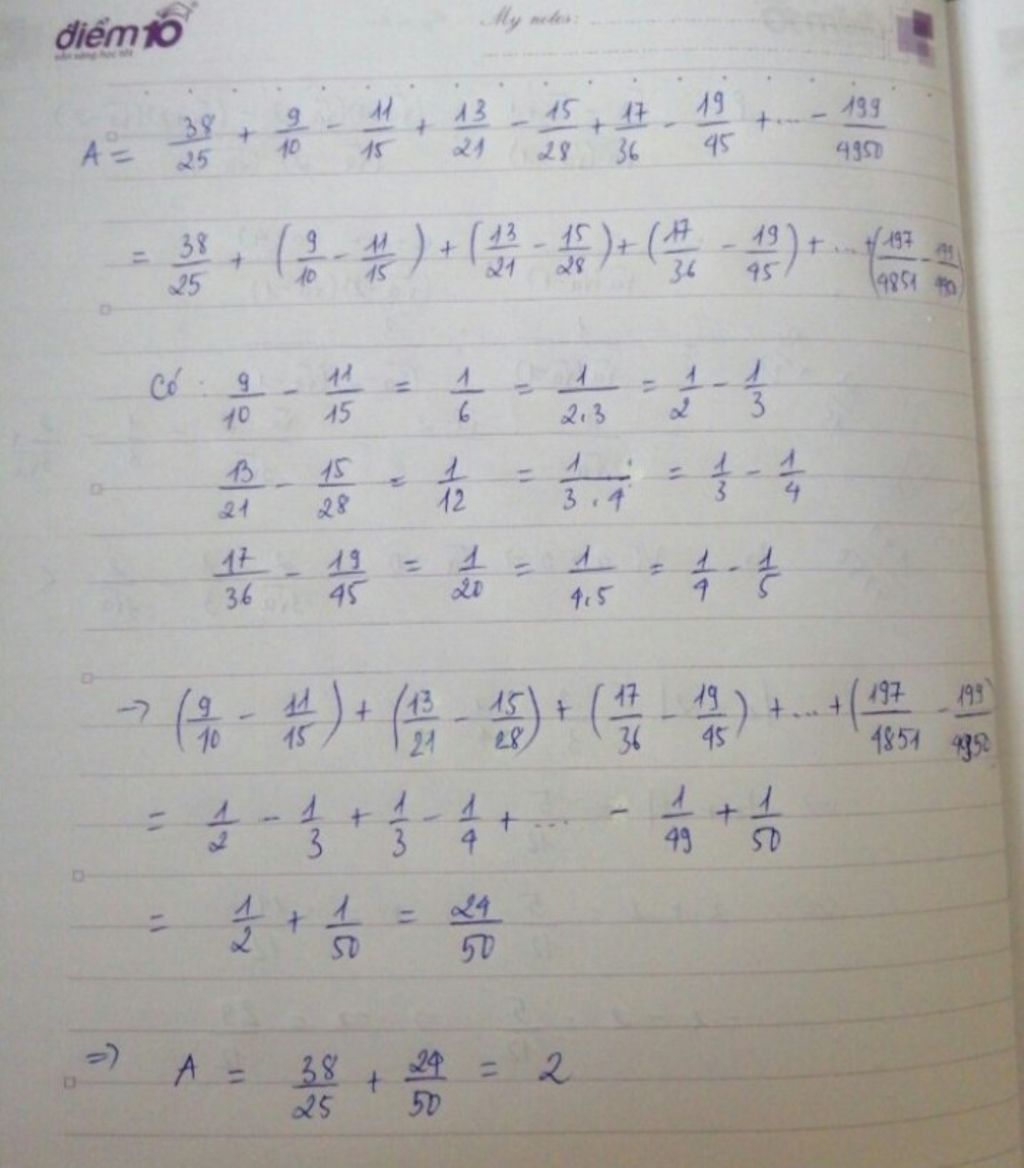 điểm 10
sẵn sàng học tốt
My notes:
A = 38/25 + 9/10 - 11/15 + 13/21 - 15/28 + 17/36 - 19/45 + ... - 199/4950
= 38/25 + (9/10 - 11/15) + (13/21 - 15/28) + (17/36 - 19/45) + ... + (197/4851 - 199/490)
Có: 9/10 - 11/15 = 1/6 = 1/2.3 = 1/2 - 1/3
13/21 - 15/28 = 1/12 = 1/3.4 = 1/3 - 1/4
17/36 - 19/45 = 1/20 = 1/4.5 = 1/4 - 1/5
→ (9/10 - 11/15) + (13/21 - 15/28) + (17/36 - 19/45) + ... + (197/4851 - 199/4950)
= 1/2 - 1/3 + 1/3 - 1/4 + ... - 1/49 + 1/50
= 1/2 + 1/50 = 24/50
⇒ A = 38/25 + 24/50 = 2